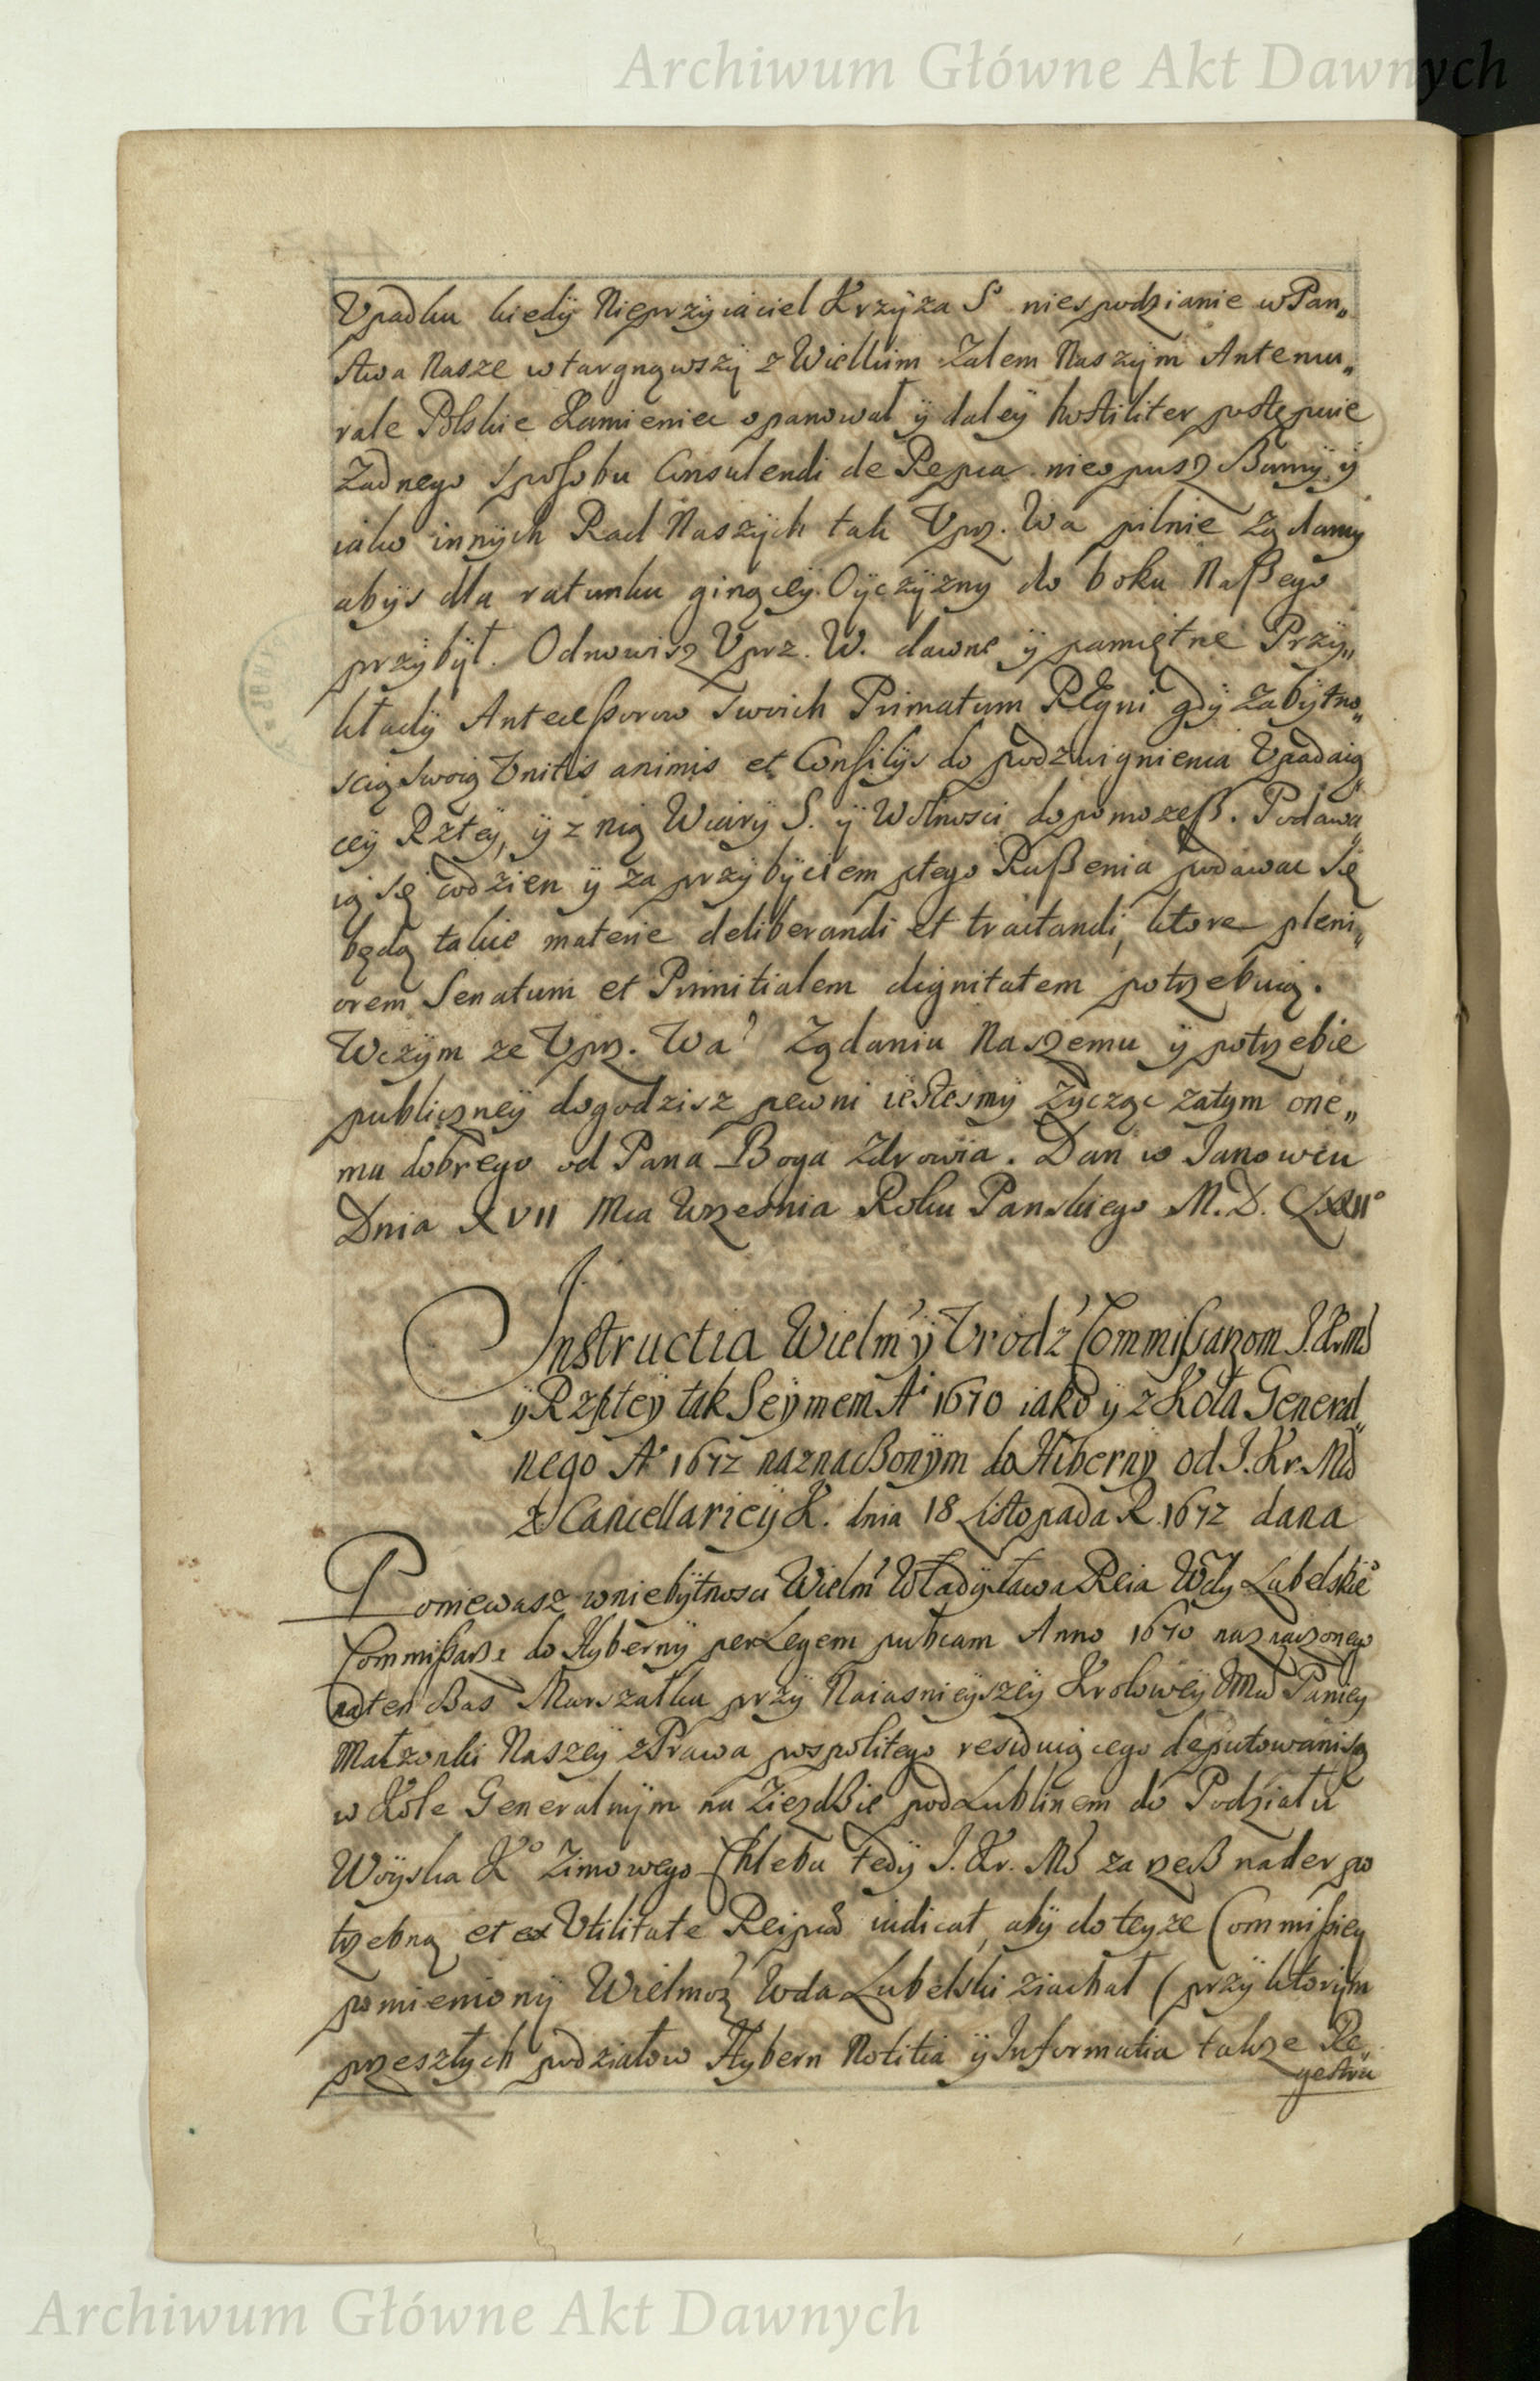 Archiwum Główne Akt Dawnych
Vpadku kiedÿ Nieprzÿiaciel Krzÿża S° niespodzianie w Pan„
stwa Nasze wtargnąwszÿ z Wielkim Zalem Naszÿm Antemu„
rale Polskie Kamieniec opanował ÿ daleÿ hostiliter postępuie
Zadnego sposobu Consulendi de Repca nieopuszßamÿ ÿ
iako innÿch Rad Naszÿch tak Vprz. Wa pilnie Ządamÿ
abÿs dla ratunku ginąceÿ Oÿczÿznÿ do boku Naßego
przÿbÿł. Odnowisz Vprz. W. dawne ÿ pamiętne Przÿ„
kładÿ Antecessorow Twoich Primatum Regni gdÿ Zabÿtno„
scią swoią Vnitis animis et Consilÿs do podzwignienia Vpadaią„
ceÿ Rzteÿ, ÿ z nią Wiarÿ S. ÿ Wolnosci dopomozeß. Podawa„
ią się codzien ÿ za przÿbÿciem ptego Rußenia podawac się
będą takie materie deliberandi et tractandi, ktore pleni„
orem Senatum et Primitialem dignitatem potrzebuią.
Wczÿm ze Vprz. Wa Ządaniu Naszemu ÿ potrzebie
publiczneÿ dogodzisz pewni iestesmÿ Zÿcząc zatym one„
mu dobrego od Pana Boga Zdrowia. Dan w Janowcu
Dnia XVII Mca Wrzesnia Roku Panskiego M.D. CLXXII°
Instructia Wielm ÿ Vrodz Commissarzom J.K.Ms
ÿ Rzpteÿ tak Seÿmem A° 1670 iako ÿ z Koła General„
nego A° 1672 naznaßonÿm do Hibernÿ od J. Kr. Ms
z Cancellarieÿ K. dnia 18 Listopada R. 1672 dana
Poniewasz wniebÿtnosci Wielm Władÿsława Reia Wdÿ Lubelskie°
Commissarza do Hÿbernÿ per Legem publcam Anno 1670 naznaczonego
naten ßas Marszałka przÿ Naiasnieÿszeÿ Krolowеÿ JMci Paniey
Małzonki Naszeÿ z Prawa pospolitego residuiącego deputowani są
w Kole Generalnÿm na Ziezdßie pod Lublinem do Podziału
Woÿska K° Zimowego Chleba Tedÿ J. Kr. Ms za rzeß nader po
trzebną et ex Vtilitate Reipub iudicat, abÿ do teyze Commissiey
pomienionÿ Wielmoz Wda Lubelski ziachał (przÿ ktorÿm
przeszłych podziałow Hÿbern Notitia ÿ Informatia takze Re„
gestra
Archiwum Główne Akt Dawnych